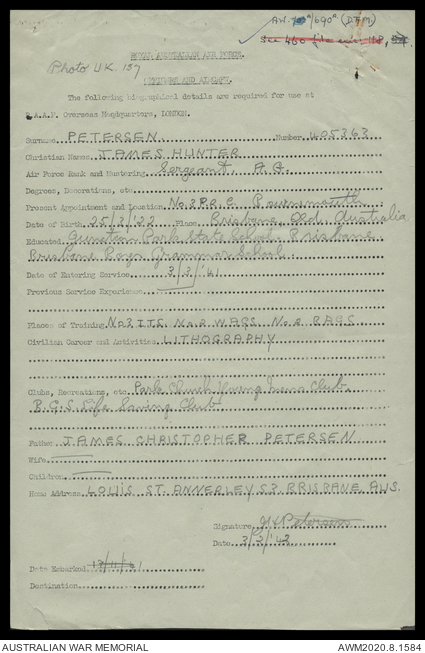 AW. /690A (DPM)
See 460
ROYAL AUSTRALIAN AIR FORCE.
Photo UK 137
OFFICERS AND AIRMEN.
The following biographical details are required for use at
R.A.A.F. Overseas Headquarters, LONDON.
Surname PETERSEN Number 405363
Christian Names JAMES HUNTER
Air Force Rank and Mustering Sergeant, A.G.
Degrees, Decorations, etc
Present Appointment and Location No 3 P.R.C. Bournemouth
Date of Birth 25/2/'22 Place Brisbane Qld. Australia
Educated Park State School, Brisbane,
Brisbane Boys Grammar School
Date of Entering Service 2/2/'41
Previous Service Experience
Places of Training No 3 I.T.S. No 2 W.A.G.S. No 2 B.A.G.S
Civilian Career and Activities LITHOGRAPHY
Clubs, Recreations, etc Park Church Young Mens Club.
B.G.S. Life Saving Club
Father JAMES CHRISTOPHER PETERSEN
Wife
Children
Home Address LOUIS ST. ANNERLEY S.3 BRISBANE AUS.
Signature J H Petersen
Date 3/3/'42
Date Embarked
Destination
AUSTRALIAN WAR MEMORIAL AWM2020.8.1584